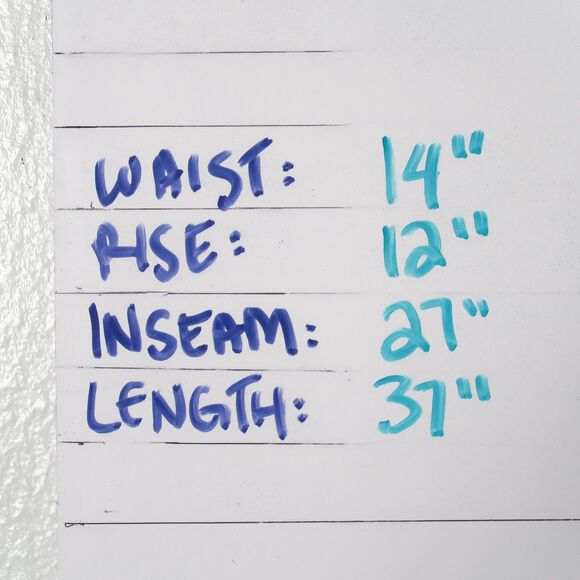 WAIST: 14"
RISE: 12"
INSEAM: 27"
LENGTH: 37"